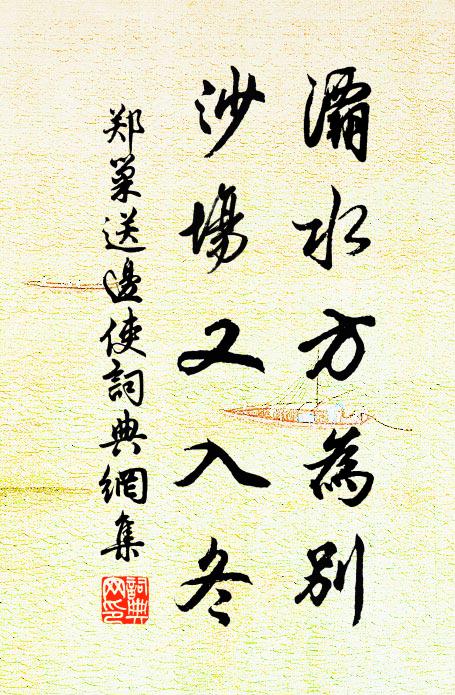 灞水方為別
沙場又入冬
郑巢送邊使詞典網集
詞典
网印